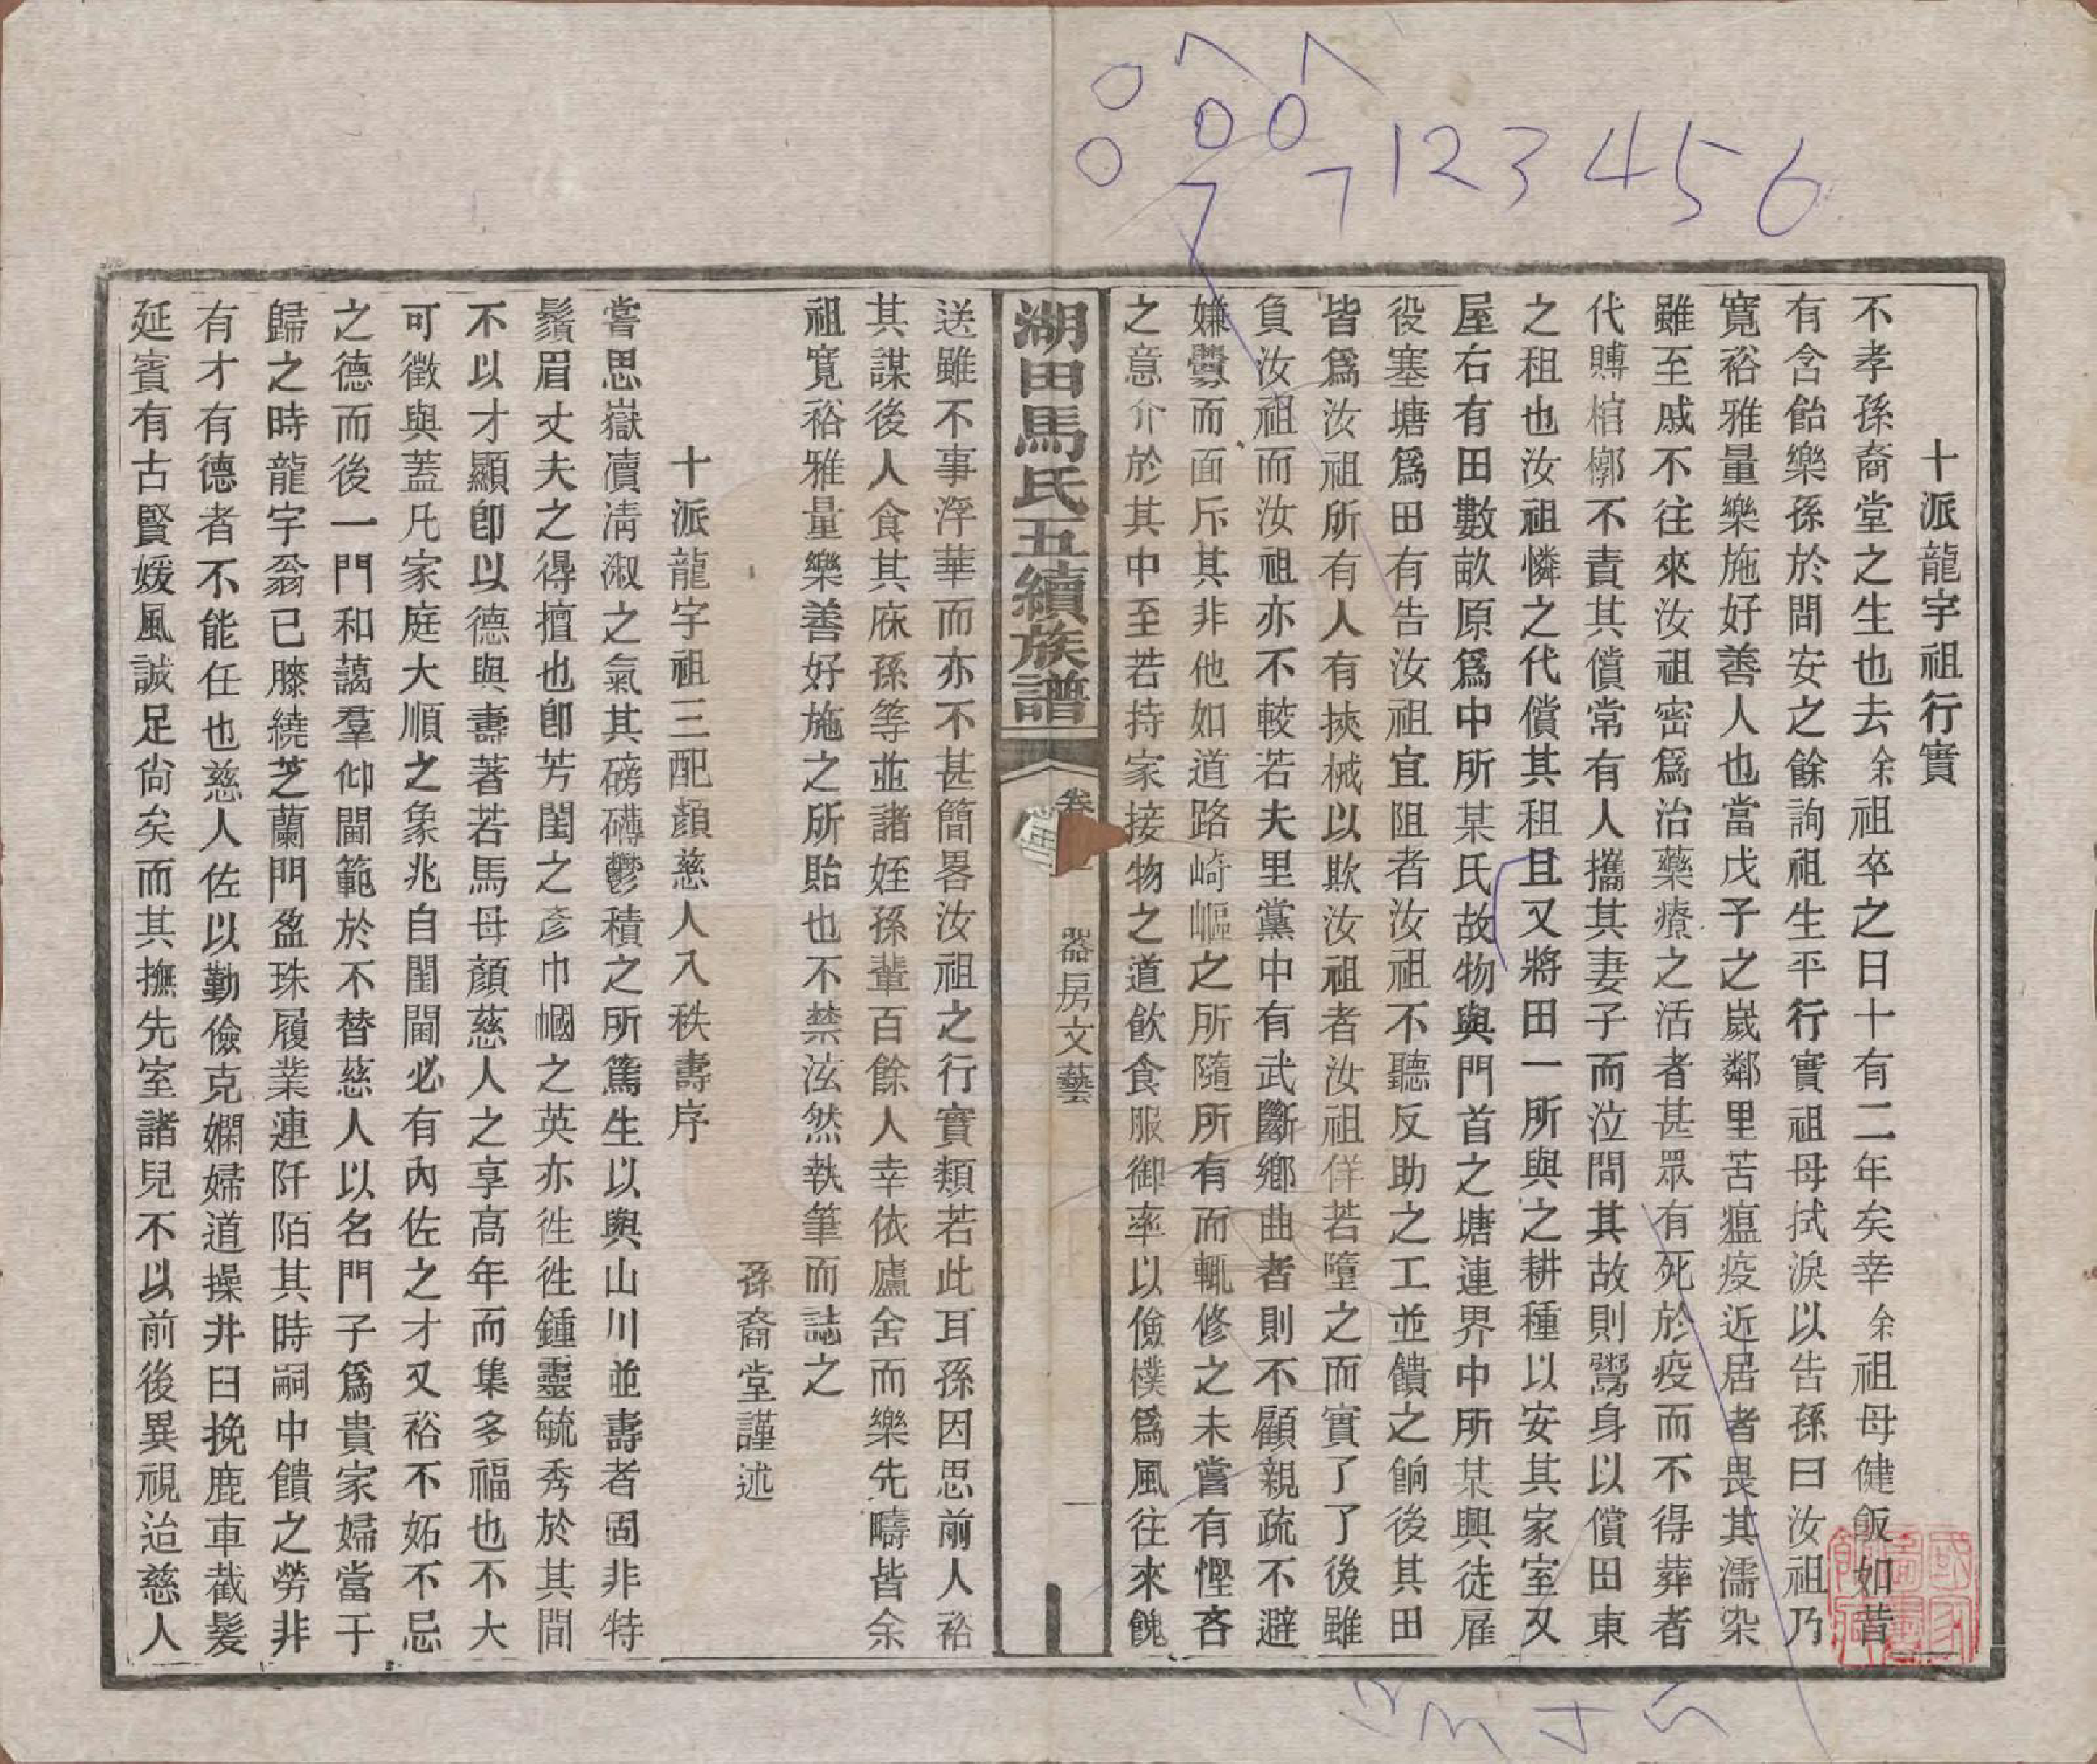 十派龍宇祖行實
不孝孫裔堂之生也去余祖卒之日十有二年矣幸余祖母健飯如昔
有含飴樂孫於問安之餘詢祖生平行實祖母拭淚以告孫曰汝祖乃
寬裕雅量樂施好善人也當戊子之歲鄰里苦瘟疫近居者畏其濡染
雖至戚不往來汝祖密爲治藥療之活者甚眾有死於疫而不得葬者
代賻棺槨不責其償常有人攜其妻子而泣問其故則鬻身以償田東
之租也汝祖憐之代償其租且又將田一所與之耕種以安其家室又
屋右有田數畝原爲中所某氏故物與門首之塘連界中所某興徒雇
役塞塘爲田有告汝祖宜阻者汝祖不聽反助之工並饋之餉後其田
皆爲汝祖所有人有挾械以欺汝祖者汝祖佯若墮之而實了了後雖
負汝祖而汝祖亦不較若夫里黨中有武斷鄉曲者則不顧親疏不避
嫌釁而面斥其非他如道路崎嶇之所隨所有而輒修之未嘗有慳吝
之意介於其中至若持家接物之道飲食服御率以儉樸爲風往來餽
湖田馬氏五續族譜
卷
器房文藝
一
送雖不事浮華而亦不甚簡畧汝祖之行實類若此耳孫因思前人裕
其謀後人食其庥孫等並諸姪孫輩百餘人幸依廬舍而樂先疇皆余
祖寬裕雅量樂善好施之所貽也不禁泫然執筆而誌之
孫裔堂謹述
十派龍宇祖三配顏慈人入秩壽序
嘗思嶽瀆清淑之氣其磅礴鬱積之所篤生以與山川並壽者固非特
鬚眉丈夫之得擅也卽芳閨之彥巾幗之英亦往往鍾靈毓秀於其間
不以才顯卽以德與壽著若馬母顏慈人之享高年而集多福也不大
可徵與蓋凡家庭大順之象兆自閨閫必有內佐之才又裕不妬不忌
之德而後一門和藹羣仰閫範於不替慈人以名門子爲貴家婦當于
歸之時龍宇翁已膝繞芝蘭門盈珠履業連阡陌其時嗣中饋之勞非
有才有德者不能任也慈人佐以勤儉克嫻婦道操井臼挽鹿車截髮
延賓有古賢媛風誠足尙矣而其撫先室諸兒不以前後異視迨慈人
1 2 3 4 5 6